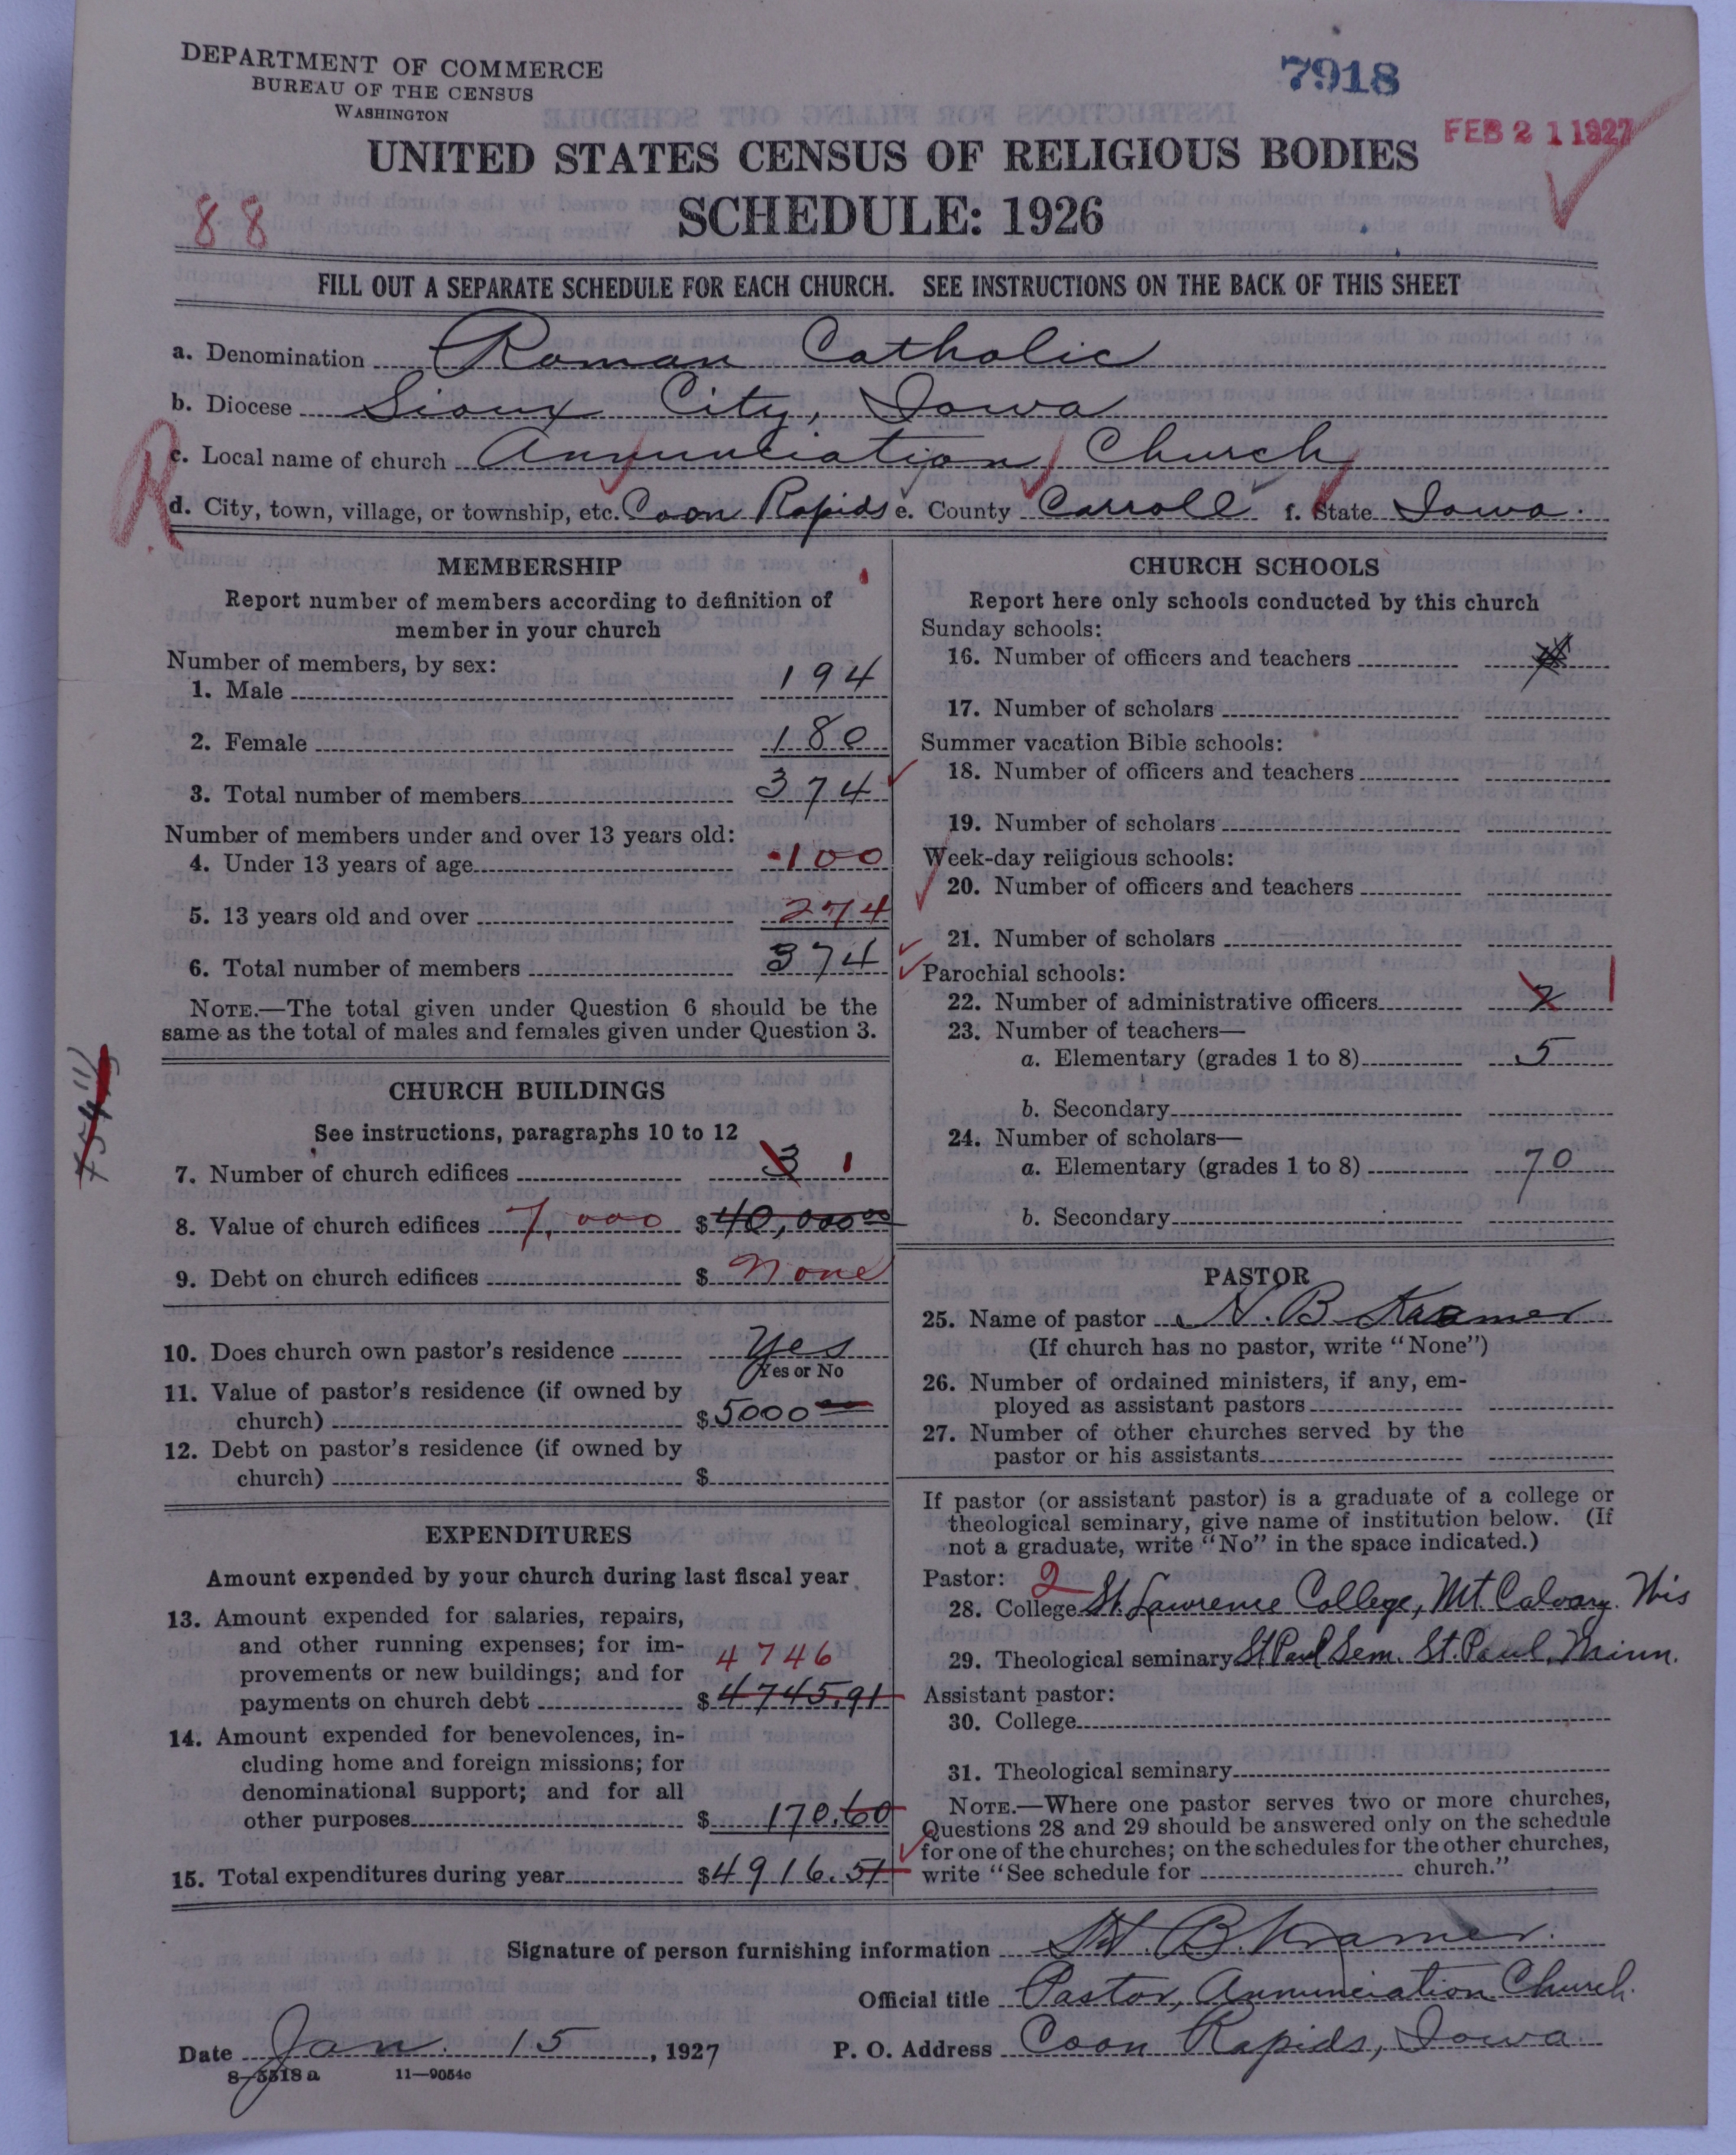 DEPARTMENT OF COMMERCE
BUREAU OF THE CENSUS
WASHINGTON
7918
FEB 21 1927
UNITED STATES CENSUS OF RELIGIOUS BODIES
SCHEDULE: 1926
88
FILL OUT A SEPARATE SCHEDULE FOR EACH CHURCH. SEE INSTRUCTIONS ON THE BACK OF THIS SHEET
a. Denomination Roman Catholic
b. Diocese Sioux City, Iowa
R
c. Local name of church Annunciation Church
d. City, town, village, or township, etc. Coon Rapids e. County Carroll f. State Iowa.
MEMBERSHIP
Report number of members according to definition of
member in your church
Number of members, by sex:
1. Male 194
2. Female 180
3. Total number of members 374
Number of members under and over 13 years old:
4. Under 13 years of age 100
5. 13 years old and over 274
6. Total number of members 374
NOTE.—The total given under Question 6 should be the
same as the total of males and females given under Question 3.
CHURCH BUILDINGS
See instructions, paragraphs 10 to 12
7. Number of church edifices 3 1
8. Value of church edifices 7,000 $40,000 00
9. Debt on church edifices $ None
10. Does church own pastor's residence Yes
Yes or No
11. Value of pastor's residence (if owned by
church) $5000 00
12. Debt on pastor's residence (if owned by
church) $
EXPENDITURES
Amount expended by your church during last fiscal year
13. Amount expended for salaries, repairs,
and other running expenses; for im-
provements or new buildings; and for 4746
payments on church debt $4745.91
14. Amount expended for benevolences, in-
cluding home and foreign missions; for
denominational support; and for all
other purposes $ 170.60
15. Total expenditures during year $4916.51
CHURCH SCHOOLS
Report here only schools conducted by this church
Sunday schools:
16. Number of officers and teachers
17. Number of scholars
Summer vacation Bible schools:
18. Number of officers and teachers
19. Number of scholars
Week-day religious schools:
20. Number of officers and teachers
21. Number of scholars
Parochial schools:
22. Number of administrative officers 2 1
23. Number of teachers—
a. Elementary (grades 1 to 8) 5
b. Secondary
24. Number of scholars—
a. Elementary (grades 1 to 8) 70
b. Secondary
PASTOR
25. Name of pastor N. B. Kramer
(If church has no pastor, write "None")
26. Number of ordained ministers, if any, em-
ployed as assistant pastors
27. Number of other churches served by the
pastor or his assistants
If pastor (or assistant pastor) is a graduate of a college or
theological seminary, give name of institution below. (If
not a graduate, write "No" in the space indicated.)
Pastor: 2
28. College St. Lawrence College, Mt. Calvary. Wis
29. Theological seminary St Paul Sem. St. Paul, Minn.
Assistant pastor:
30. College
31. Theological seminary
NOTE.—Where one pastor serves two or more churches,
Questions 28 and 29 should be answered only on the schedule
for one of the churches; on the schedules for the other churches,
write "See schedule for church."
Signature of person furnishing information N. B. Kramer.
Official title Pastor, Annunciation Church.
Date Jan. 15, 1927 P. O. Address Coon Rapids, Iowa
8—5518 a 11—9054c